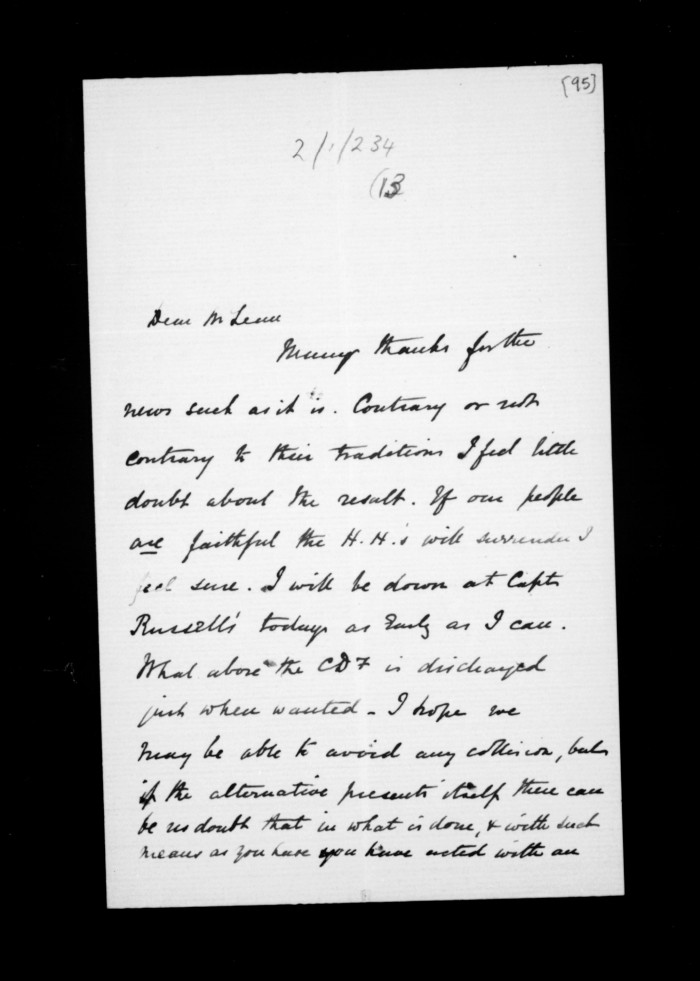 [95]
2/1/234
(13
Dear McLean
Many thanks for the
news such as it is. Contrary or not
contrary to their traditions I feel little
doubt about the result. If our people
are faithful the H.H.'s will surrender I
feel sure. I will be down at Capt
Russell's today as Early as I can.
What above the CDF is discharged
just when wanted - I hope we
may be able to avoid any collision, but
if the alternative presents itself there can
be no doubt that in what is done, & with such
means as you have you have acted with an